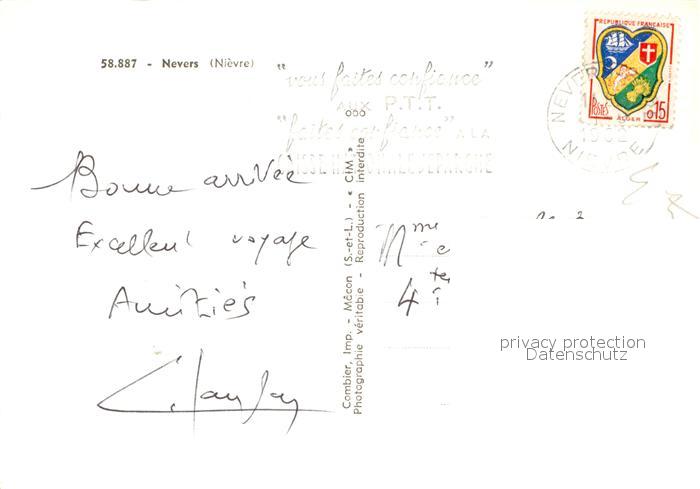 58.887 - Nevers (Nièvre)
"vous faites confiance"
AUX P.T.T.
"faites confiance" A LA
CAISSE NATIONALE D'EPARGNE
REPUBLIQUE FRANÇAISE
POSTES
ALGER
0,15
NEVERS
NIEVRE
Bonne arrivée
Excellent voyage
Amitiés
Combier, Imp. - Mâcon (S.-et-L.) - « CIM »
Photographie véritable - Reproduction interdite
Mme
4
privacy protection
Datenschutz